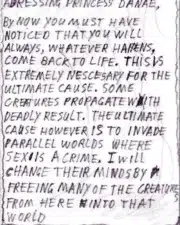 ADRESSING PRINCESS DANAE,
BY NOW YOU MUST HAVE
NOTICED THAT YOU WILL
ALWAYS, WHATEVER HAPENS,
COME BACK TO LIFE. THIS IS
EXTREMELY NESCESARY FOR THE
ULTIMATE CAUSE. SOME
CREATURES PROPAGATE WITH
DEADLY RESULT. THE ULTIMATE
CAUSE HOWEVER IS TO INVADE
PARALLEL WORLDS WHERE
SEX IS A CRIME. I WILL
CHANGE THEIR MINDS BY
FREEING MANY OF THE CREATURE
FROM HERE INTO THAT
WORLD